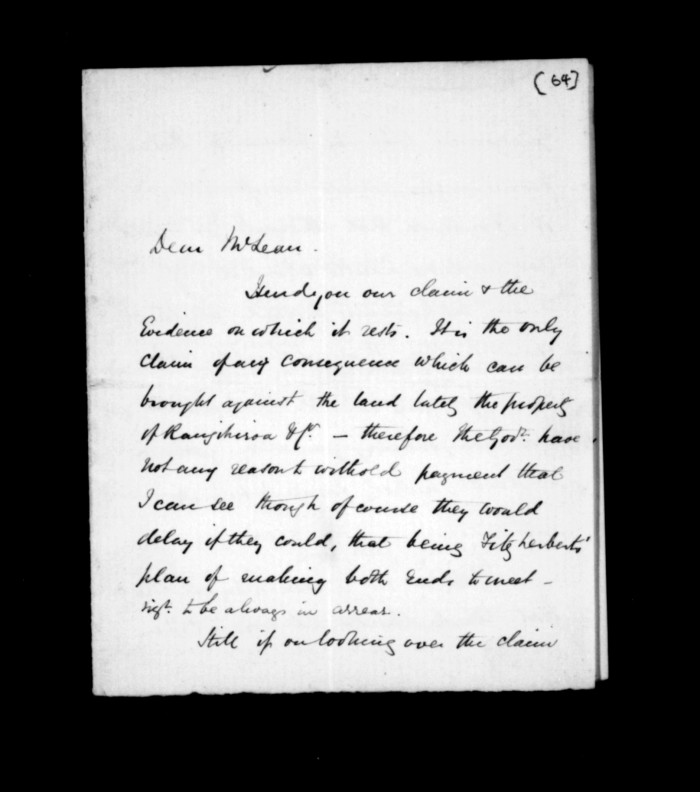 (64)
Dear McLean.
I send you our claim & the
Evidence on which it rests. It is the only
claim of any consequence which can be
brought against the land lately the property
of Rangihiroa &c. — therefore the Govt. have
not any reason to withold payment that
I can see though of course they would
delay if they could, that being Fitzherberts'
plan of making both Ends to meet –
to be always in arrear.
Still if on looking over the claim